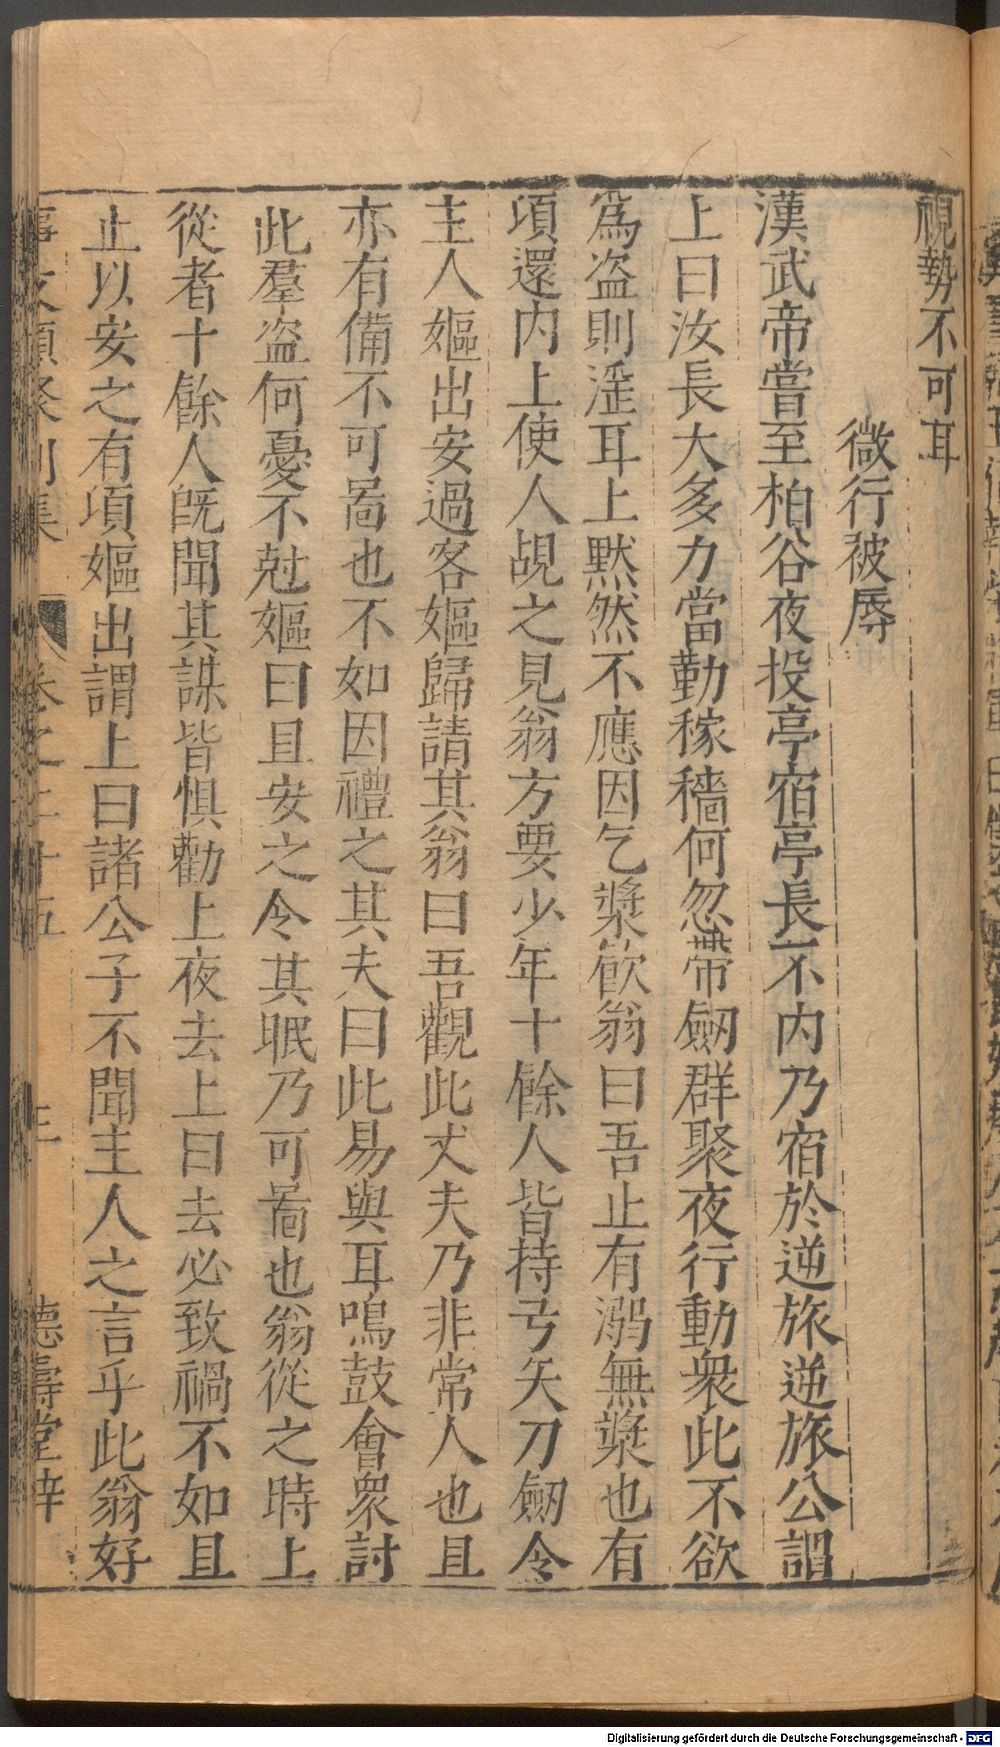 視勢不可耳
微行被辱
漢武帝嘗至柏谷夜投亭宿亭長不内乃宿於逆旅逆旅公謂
上曰汝長大多力當勤稼穡何忽帶劒群聚夜行動衆此不欲
爲盗則淫耳上默然不應因乞漿飲翁曰吾止有溺無漿也有
項還内上使人覘之見翁方要少年十餘人皆持弓矢刀劒令
主人嫗出安過客嫗歸請其翁曰吾觀此丈夫乃非常人也且
亦有備不可啚也不如因禮之其夫曰此易與耳鳴鼓會衆討
此羣盗何憂不尅嫗曰且安之令其眠乃可啚也翁從之時上
從者十餘人既聞其謀皆惧勸上夜去上曰去必致禍不如且
止以安之有項嫗出謂上曰諸公子不聞主人之言乎此翁好
事文類聚别集 卷之二十五 三 德壽堂梓
Digitalisierung gefördert durch die Deutsche Forschungsgemeinschaft - DFG